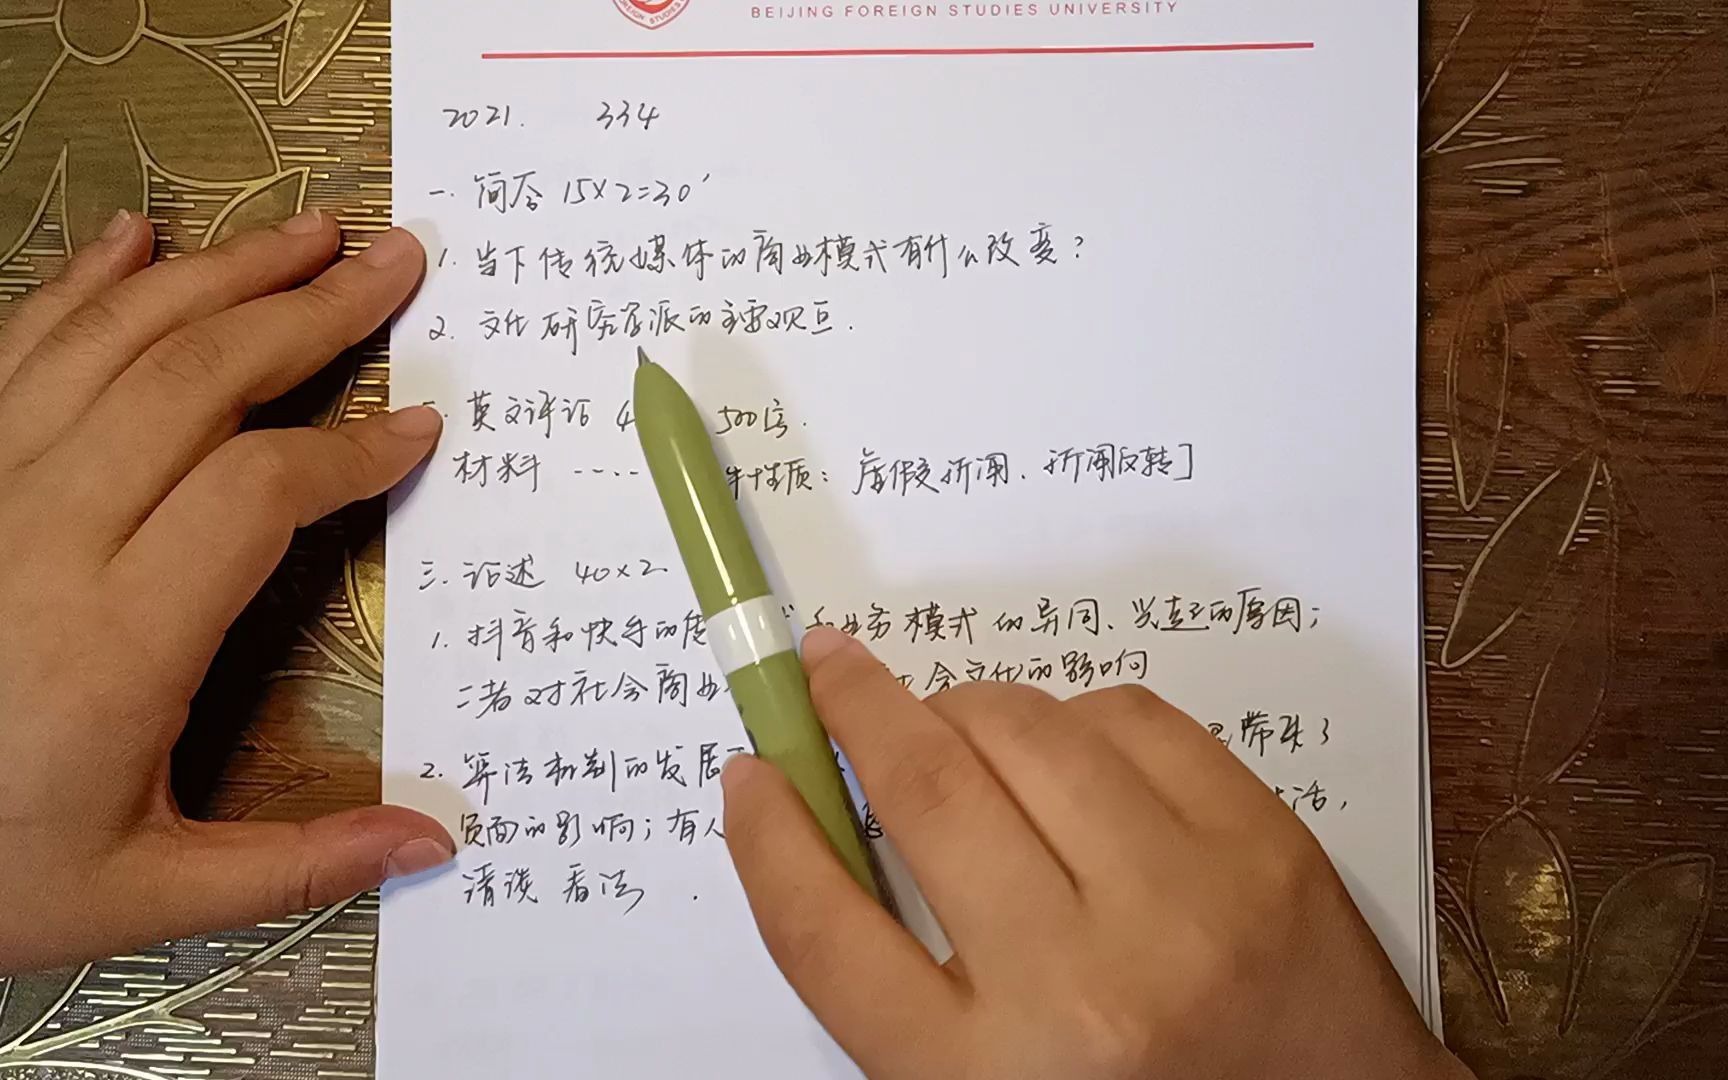 FOREIGN STUDIES
BEIJING FOREIGN STUDIES UNIVERSITY
2021. 334
一. 简答 15×2=30'
1. 当下传统媒体的商业模式有什么改变?
2. 文化研究学派的主要观点.
英文评论 4 500信.
材料 ---- 性质: 虚假新闻、新闻反转]
三. 论述 40×2
1. 抖音和快手的 和业务模式的异同、兴起的原因;
二者对社会商业 会文化的影响
2. 算法机制的发展 带来了
负面的影响; 有人 活,
请谈看法.